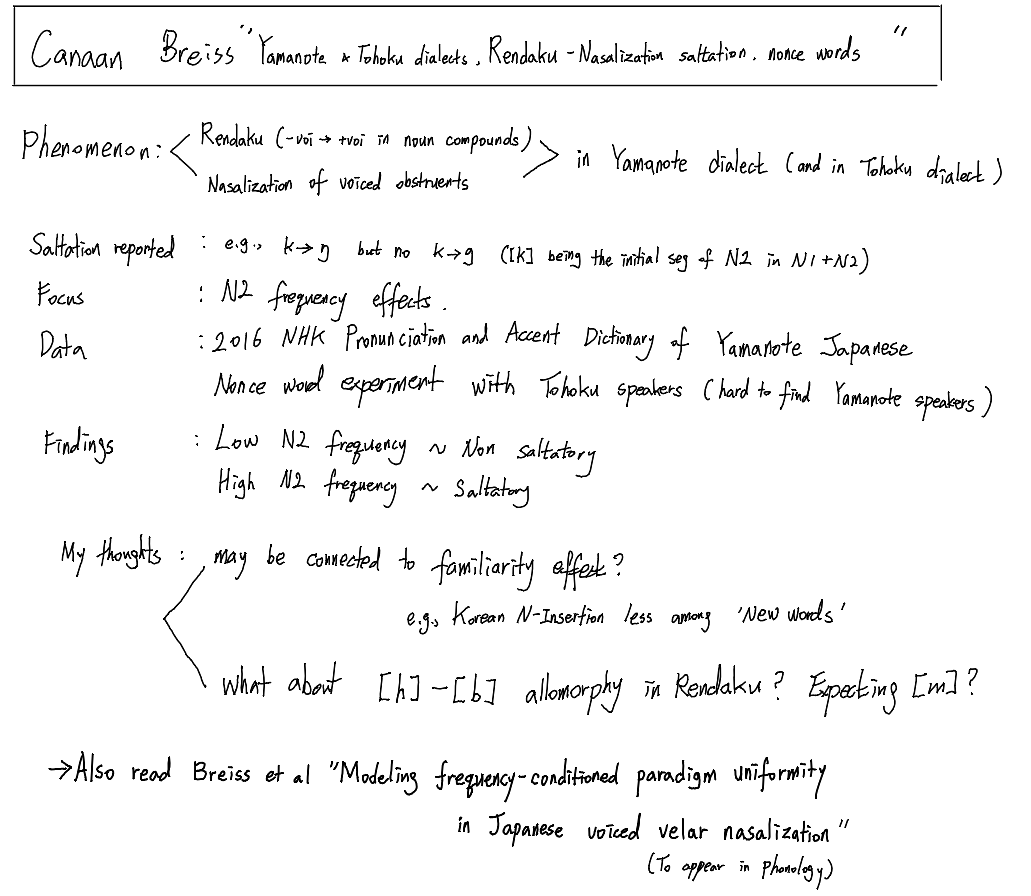 Canaan Breiss "Yamanote & Tohoku dialects, Rendaku-Nasalization saltation, nonce words"
Phenomenon: Rendaku (-voi → +voi in noun compounds)
Nasalization of voiced obstruents
in Yamanote dialect (and in Tohoku dialect)
Saltation reported : e.g., k→ŋ but no k→g ([k] being the initial seg of N2 in N1+N2)
Focus : N2 frequency effects.
Data : 2016 NHK Pronunciation and Accent Dictionary of Yamanote Japanese
Nonce word experiment with Tohoku speakers (hard to find Yamanote speakers)
Findings : Low N2 frequency ~ Non saltatory
High N2 frequency ~ Saltatory
My thoughts : may be connected to familiarity effect?
e.g., Korean N-Insertion less among 'New words'
What about [h]-[b] allomorphy in Rendaku? Expecting [m]?
→Also read Breiss et al "Modeling frequency-conditioned paradigm uniformity
in Japanese voiced velar nasalization"
(To appear in Phonology)